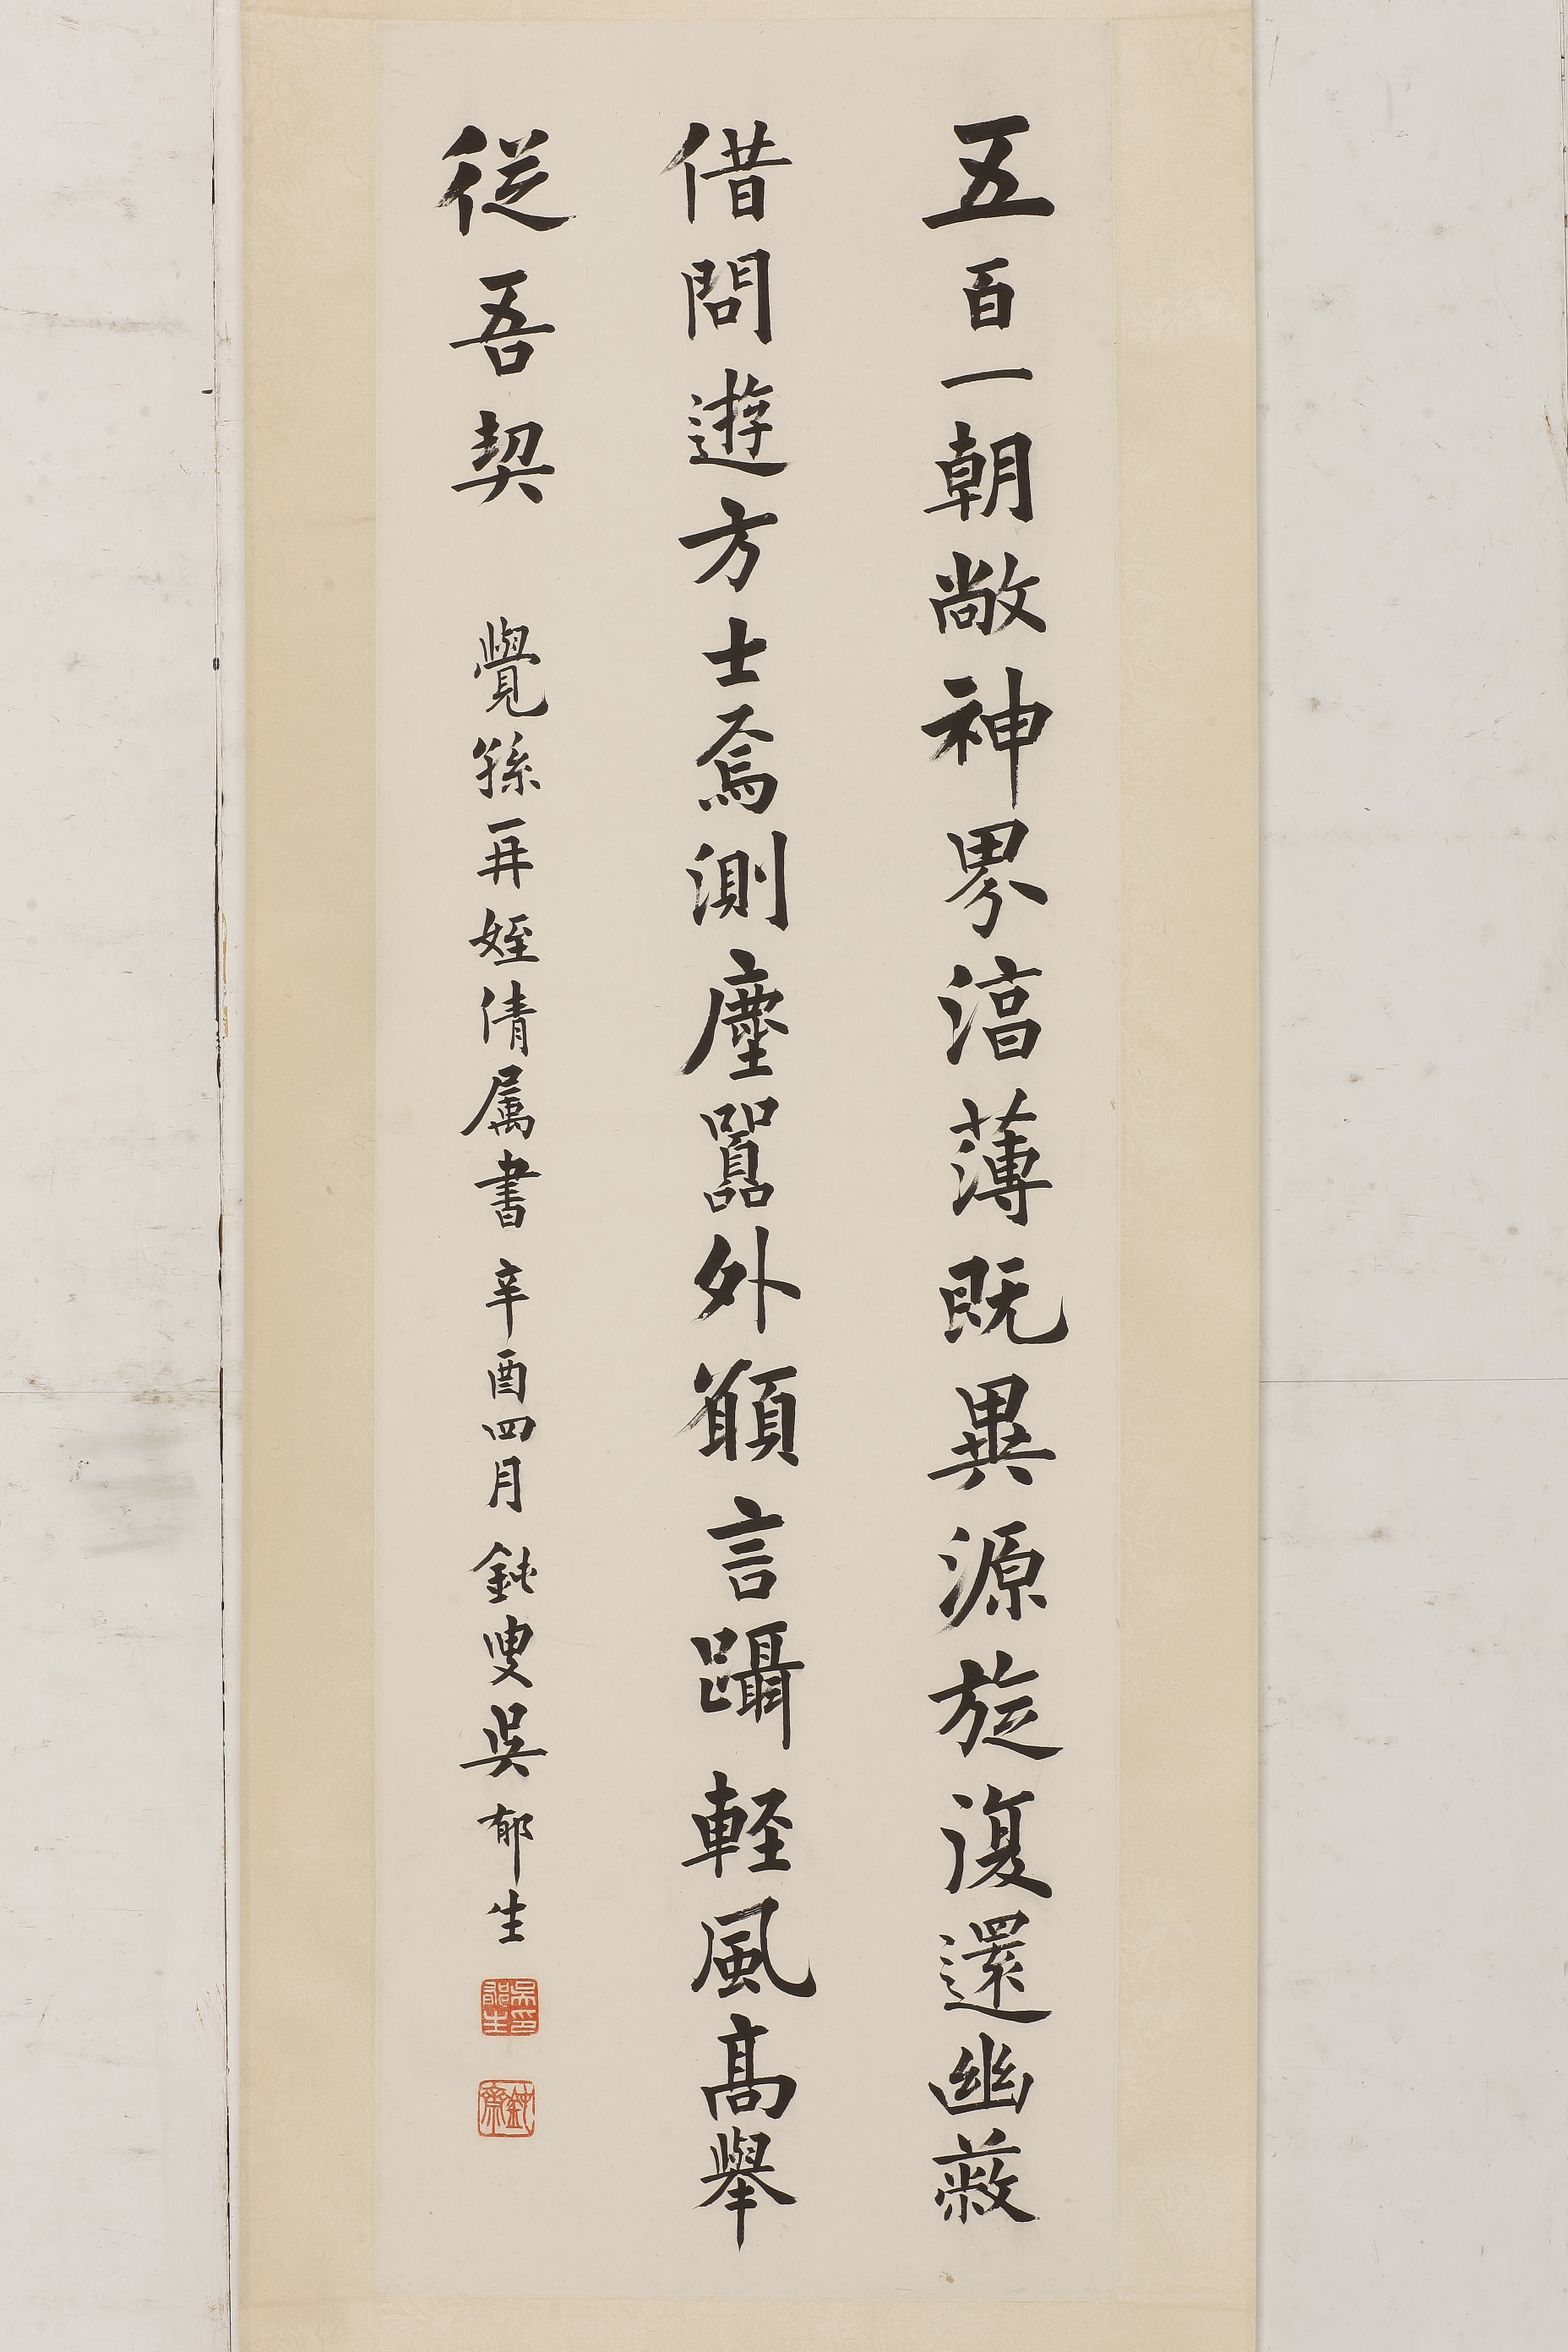 五百一朝敞神界湻薄既異源旋復還幽蔽
借問遊方士焉測塵囂外願言躡軽風高舉
从吾契 覺孫再姪倩属書 辛酉四月 鈍叟吳郁生
吳郁生印
鈍齋